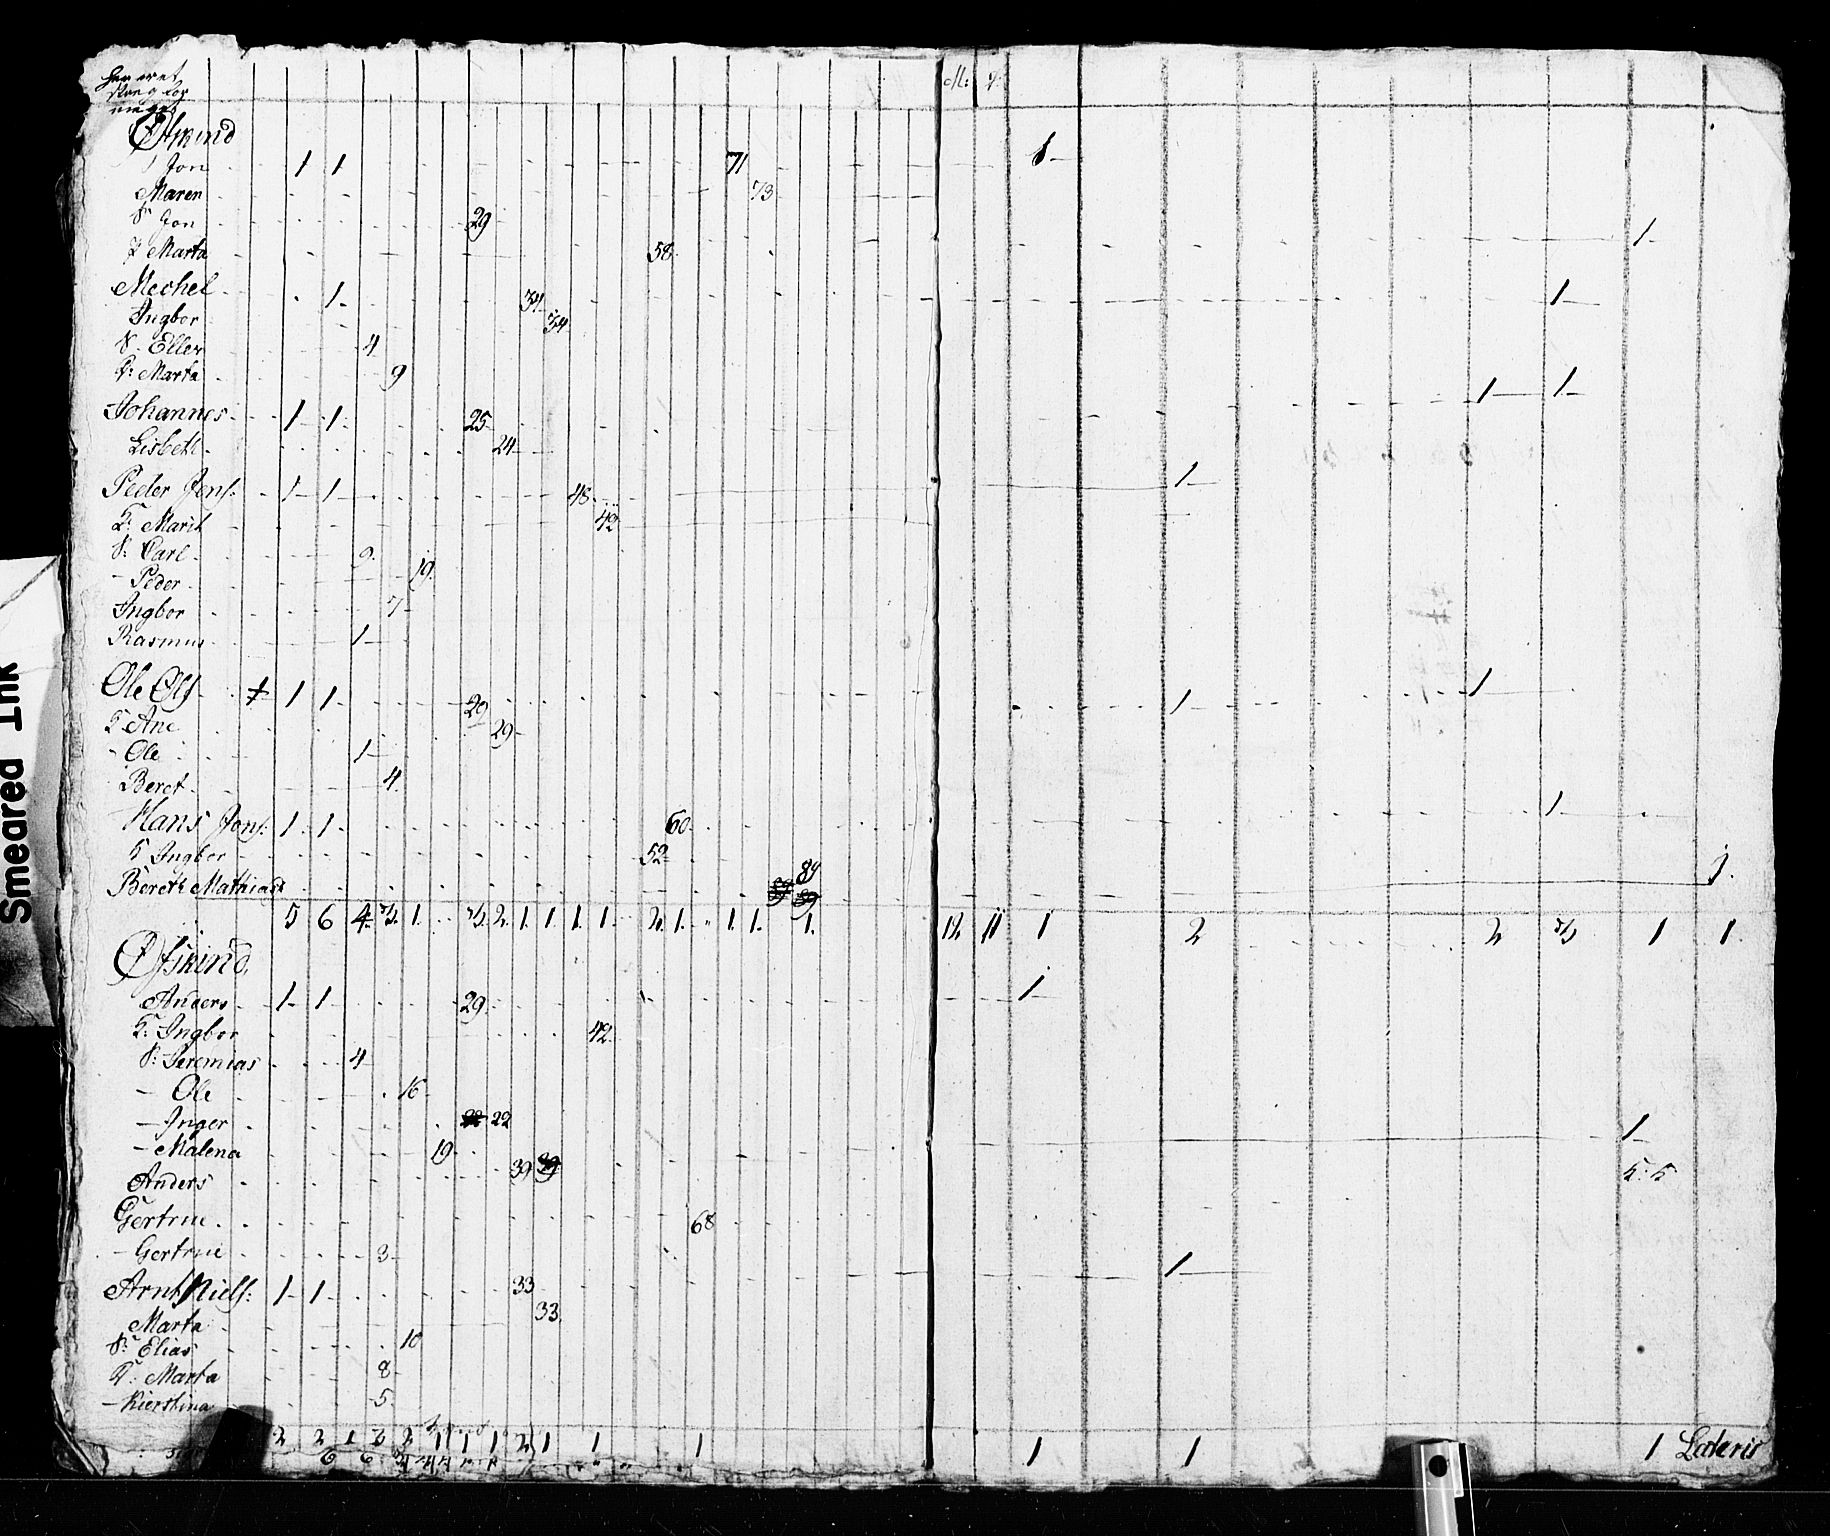 M:
Øfskind
Jon 1 1 71 1
Maren 73
S. Jon 29 1
Marta 58
Mechel 1 34 1
Ingbor 34
S. Eller 4
Marta 9
Johannes 1 1 25 1 1
Lisbeth 24
Peder Jens: 1 1 48 1
K: Marit 42
S: Carl 9
- Peder 19
Ingbor 7
Rasmus 1
Ole Ols 1 1 29 1 1
K Ane 29
- Ole 1
Beret 4
Hans Jons: 1 1 60 1
K Ingbor 52
Bereth Mathiasd 89 1
5 6 4 3 1 3 2 1 1 1 1 2 1 1 1 1 12 11 1 2 2 3 1 1
Øfskind
Anders 1 1 29 1
K: Ingbor 42
S: Jeremias 4
- Ole 16
- Inger 22 1
- Malena 19
Anders 39
Gertrue 68
- Gertrue 3
Arnt Niels: 1 1 33 1
Marta 33
S: Elias 10
Marta 8
- Kierstina 5
2 2 1 3 2 1 1 1 2 1 1 1 1 1 1 Lateris
Smeared Ink